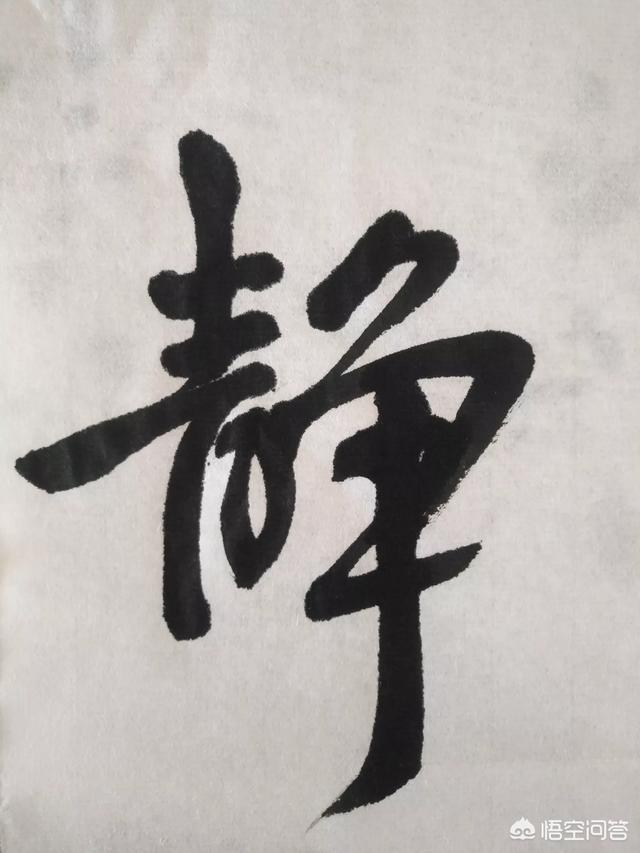 静
悟空问答